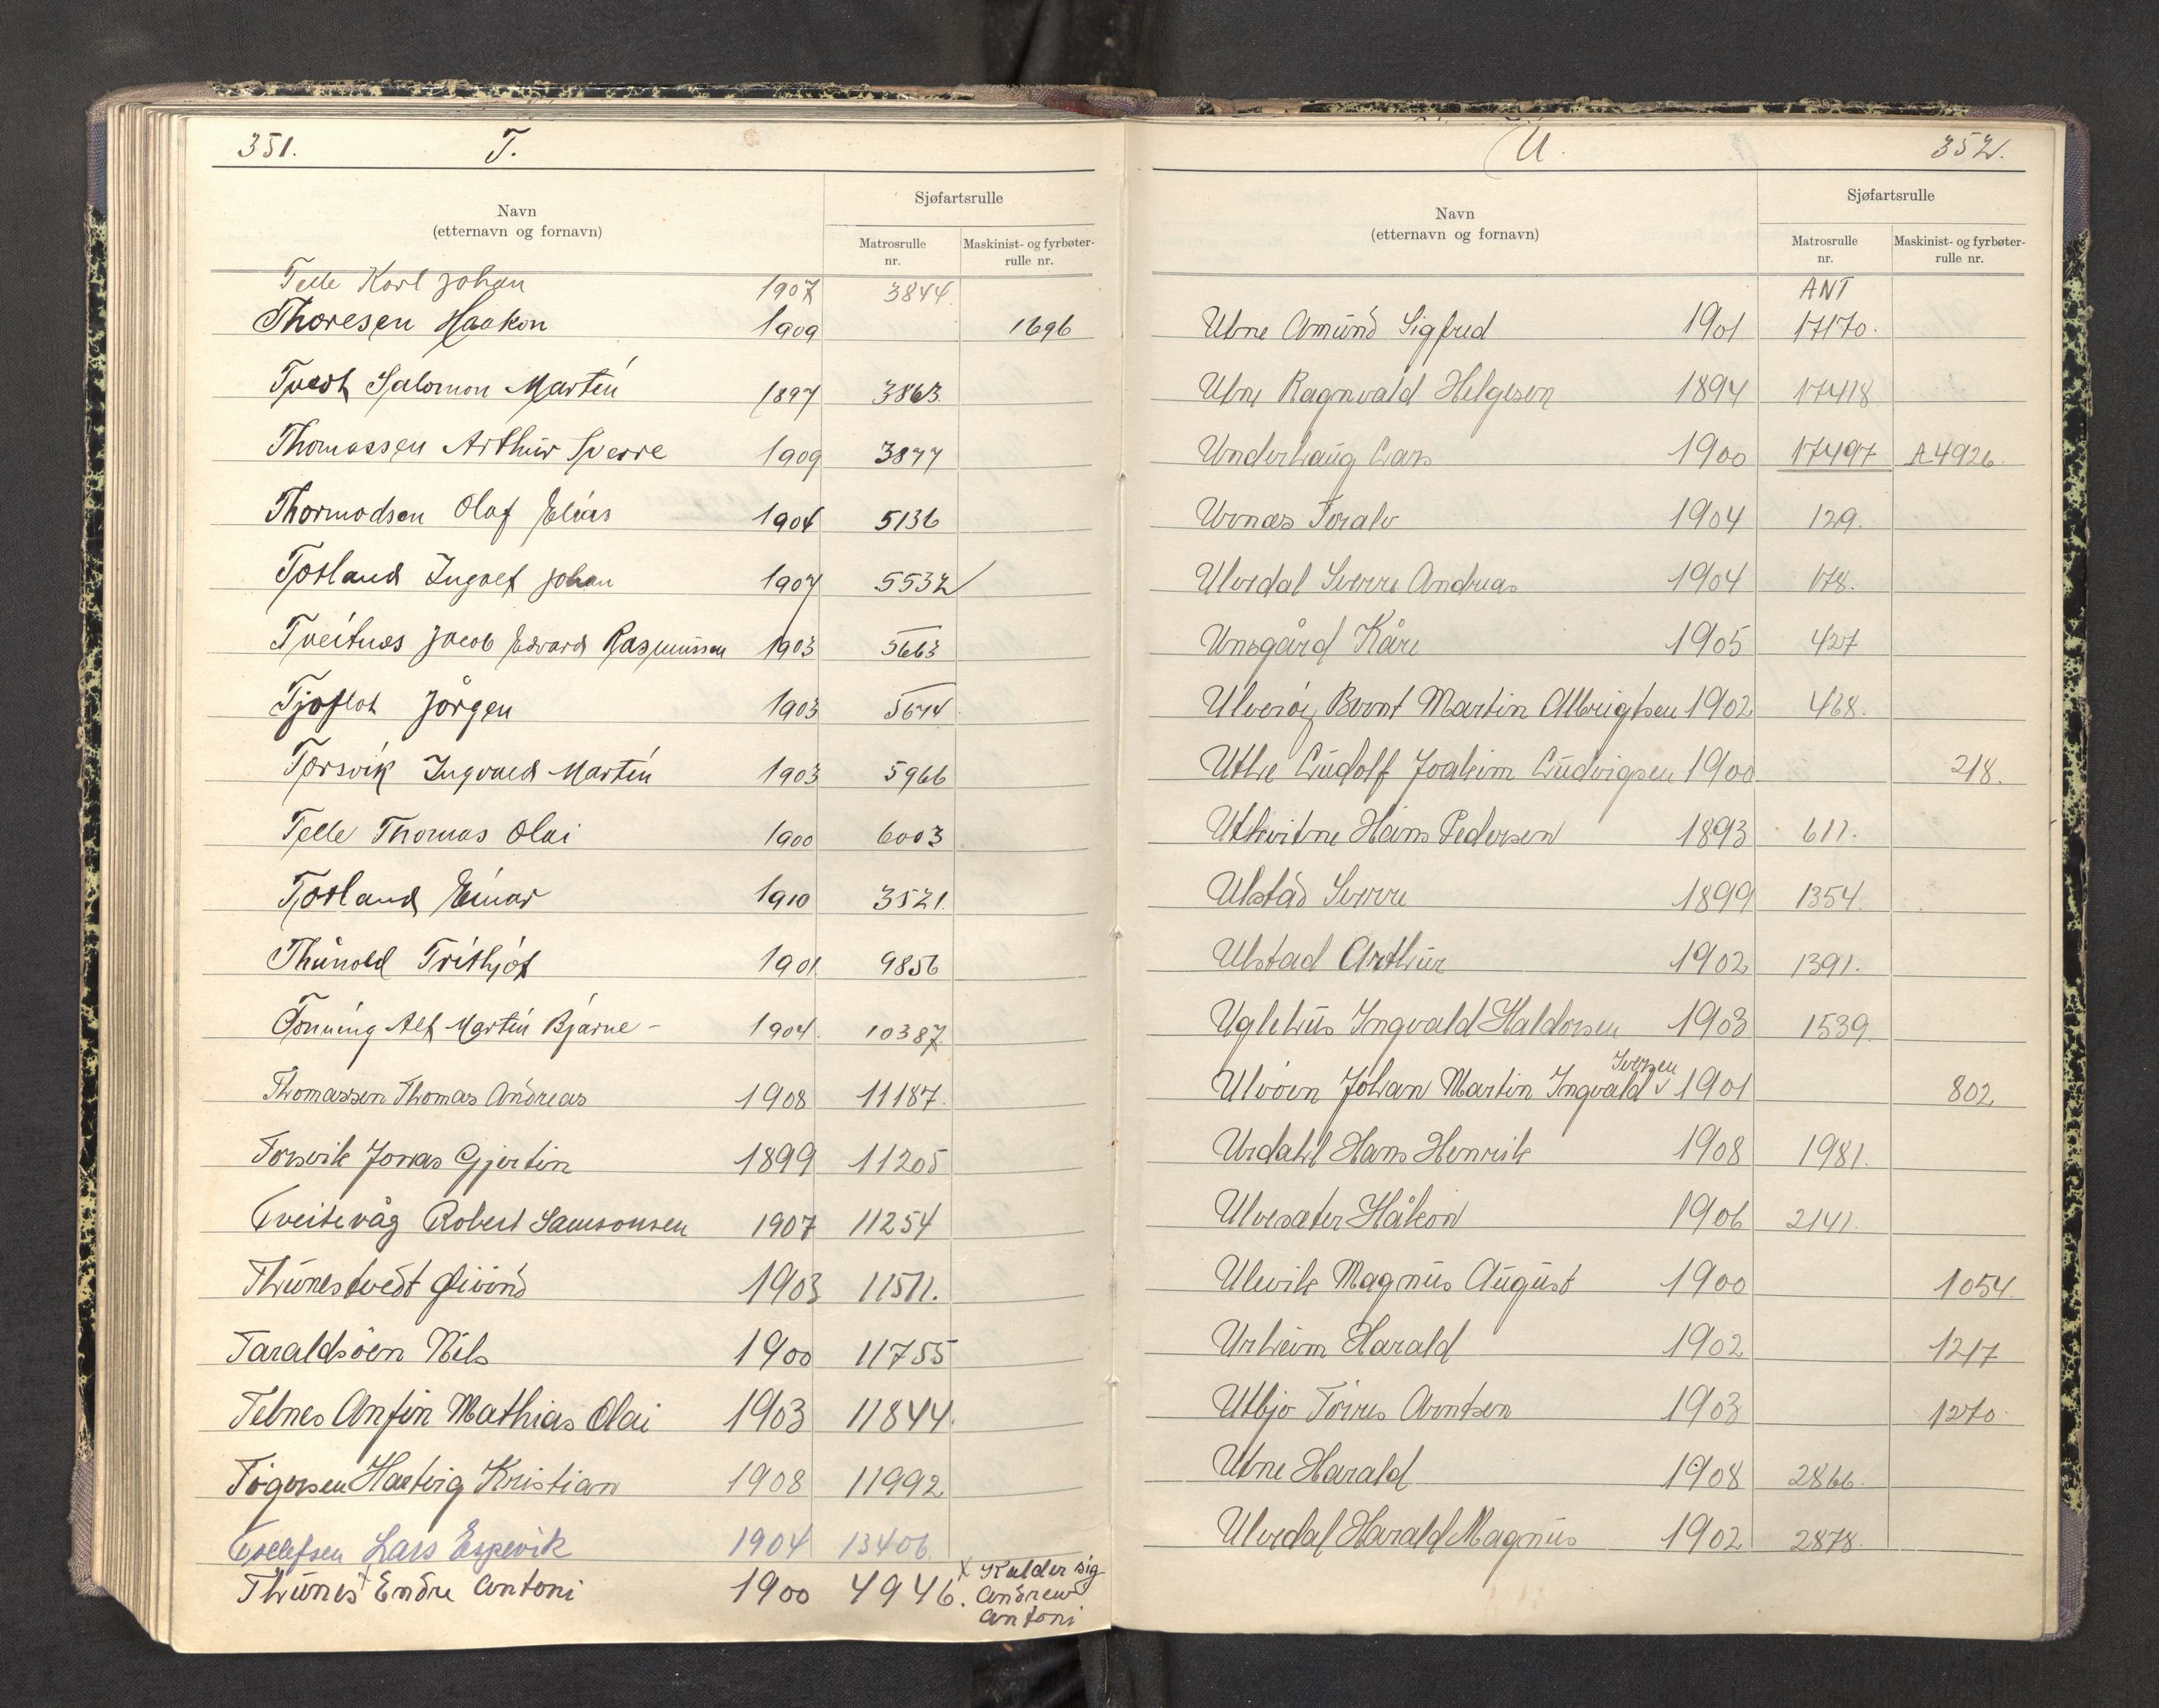 351. T.
Sjøfartsrulle
Navn
(etternavn og fornavn)
Matrosrulle
nr.
Maskinist- og fyrbøter-
rulle nr.
Telle Karl Johan 1907 3844.
Thoresen Haakon 1909 1696
Tvedt Salomon Martin 1897 3863.
Thomassen Arthur Sverre 1909 3877
Thormodsen Olaf Elias 1904 5136
Torland Ingolf Johan 1907 5532
Tveitnes Jacob Edvard Rasmussen 1903 5663
Tjoflot Jörgen 1903 5674.
Torsvik Ingvald Martin 1903 5966
Telle Thomas Olai 1900 6003
Torland Einar 1910 3521.
Thunold Frithjof 1901 9856
Tonning Alf Martin Bjarne - 1904. 10387.
Thomassen Thomas Andreas 1908 11187.
Torsvik Jonas Gjertin 1899 11205
Tveitevåg Robert Samsonsen 1907 11254
Thunestvedt Øivind 1903 11511.
Taraldsöen Nils 1900 11755
Telnes Anfin Mathias Olai 1903 11844.
Tögersen Hartvig Kristian 1908 11992
Tollefsen Lars Espevik 1904 13406.
Thunes x Endre Antoni 1900 4946. x Kalder sig
Andrew
Antoni
U. 352.
Sjøfartsrulle
Navn
(etternavn og fornavn)
Matrosrulle
nr.
Maskinist- og fyrbøter-
rulle nr.
ANT
Utne Amund Sigfred 1901 17170.
Utne Ragnvald Helgesen 1894 17418
Underhaug Lars 1900 17497 A4926.
Urnæs Toralv 1904 129.
Ulvedal Sverre Andreas 1904 178.
Unsgård Kåre 1905 427
Ulverøi Bernt Martin Albrigtsen 1902 468.
Utle Ludolf Joakim Ludvigsen 1900 218.
Utkvitne Hans Pedersen 1893 611.
Ulstad Sverre 1899 1354.
Ulstad Arthur 1902 1391.
Uglehus Ingvald Haldorsen 1903 1539.
Iversen
Ulvöen Johan Martin Ingvald v 1901 802
Urdahl Hans Henrik 1908 1981.
Ulvesæter Håkon 1906 2141.
Ulevik Magnus August 1900 1054.
Urheim Harald 1902 1217
Utbjo Törres Arntsen 1903 1270.
Utne Harald 1908 2866.
Ulvedal Harald Magnus 1902 2878.